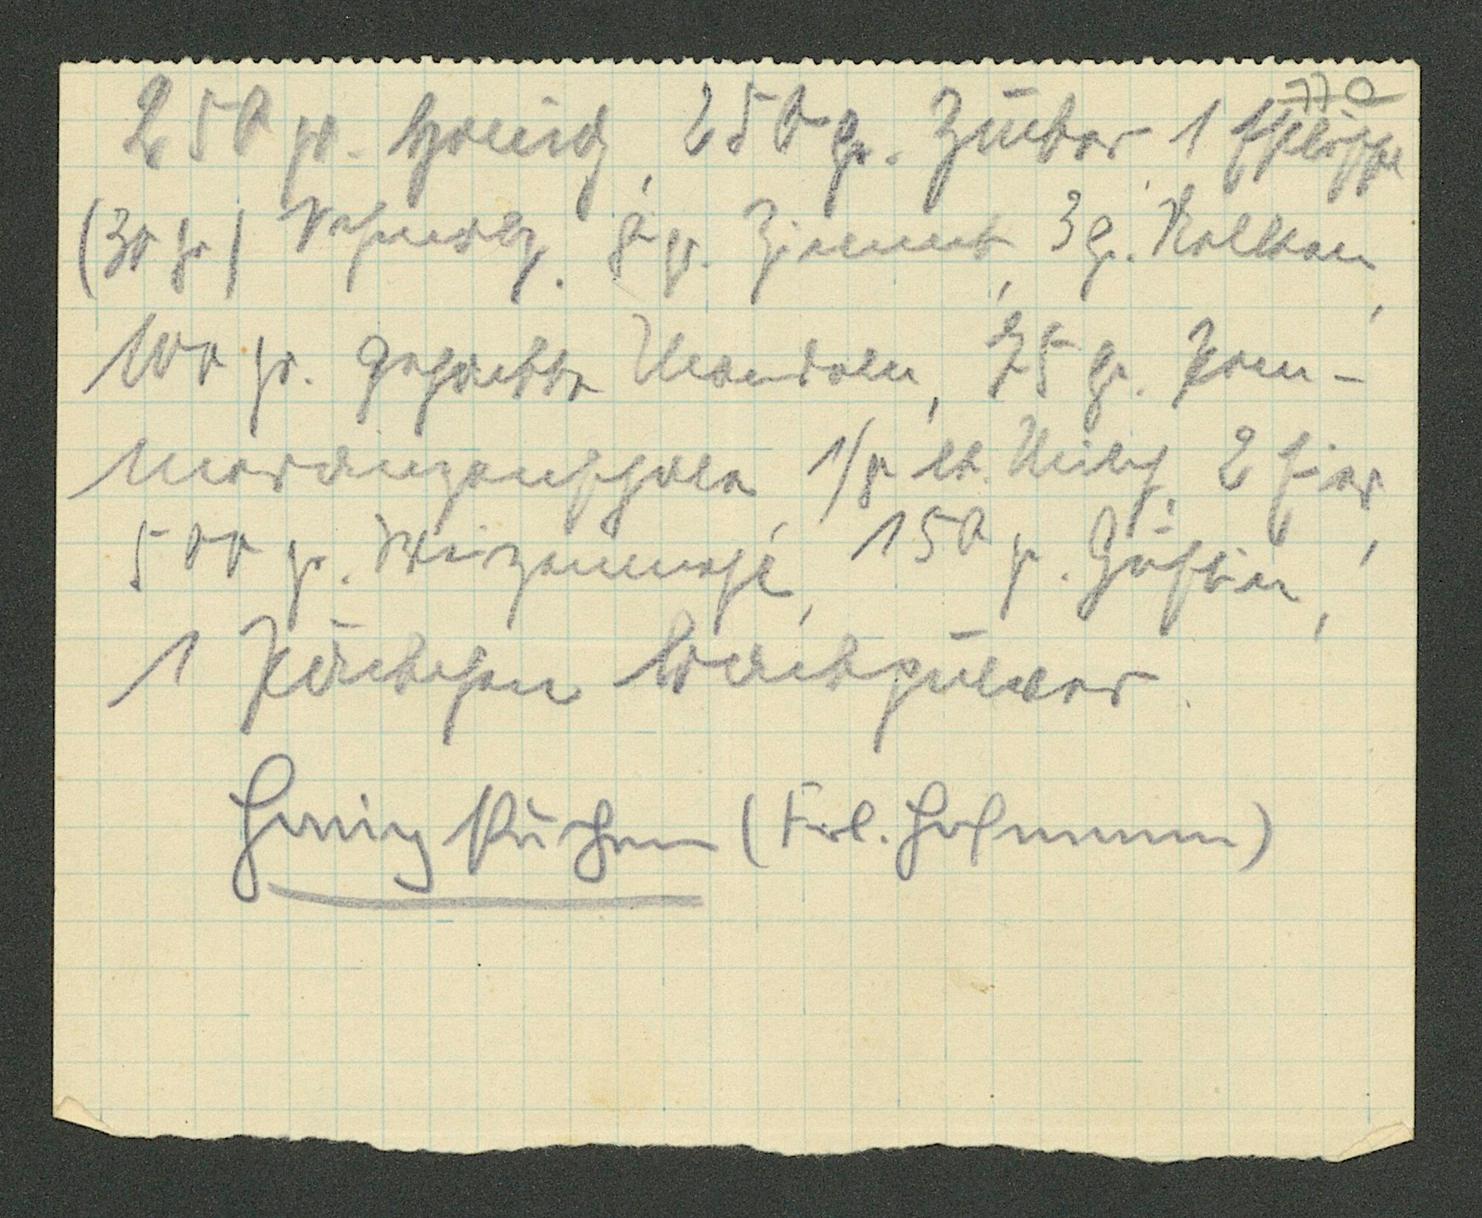 770
250 gr. Honig, 250 gr. Zucker, 1
(30 gr) 8 gr. Zimmt, 3 gr. Nelken,
100 gr. gehackte Mandeln, 75 gr. Pom-
meranzenschalen, 1/8 lt. Milch, 2 Eier,
500 gr. Weizenmehl, 150 gr.
1 Päckchen Backpulver.
Honigkuchen (Frl. Hofmann)